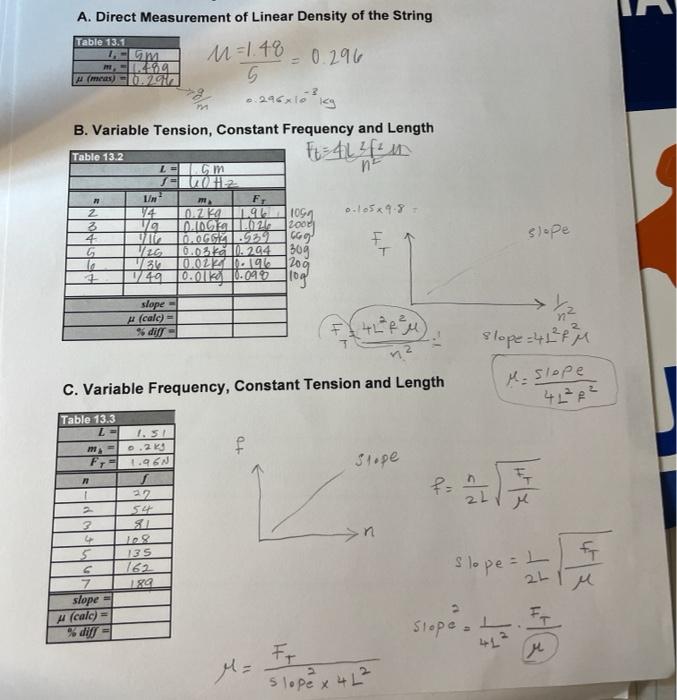 A. Direct Measurement of Linear Density of the String
Table 13.1
5m
1.48g
μ (meas) = 0.296
g/m
μ = 1.48/5 = 0.296
0.296x10⁻³ kg
B. Variable Tension, Constant Frequency and Length
Ft = 4L²f²μ/n²
Table 13.2
L = 1.5m
f = 60Hz
n 1/n² F_T
2 1/4 0.2kg 1.96
3 1/9 0.105kg 1.026 105g
4 1/16 .539 200g
5 1/25 0.03kg 0.294 66g
6 1/36 0.02kg 0.196 30g
7 1/49 0.01kg 0.098 20g
10g
slope =
μ (calc) =
% diff =
0.105x9.8 =
F_T
slope
1/n²
F_T = 4L²f²μ/n²
slope = 4L²f²μ
μ = slope/4L²f²
C. Variable Frequency, Constant Tension and Length
Table 13.3
L = 1.51
0.2kg
F_T = 1.96N
n f
1 27
2 54
3 81
4 108
5 135
6 162
7 189
slope =
μ (calc) =
% diff =
f
slope
n
f = n/2L √F_T/μ
slope = 1/2L √F_T/μ
slope² = 1/4L² · F_T/μ
μ = F_T/slope² x 4L²